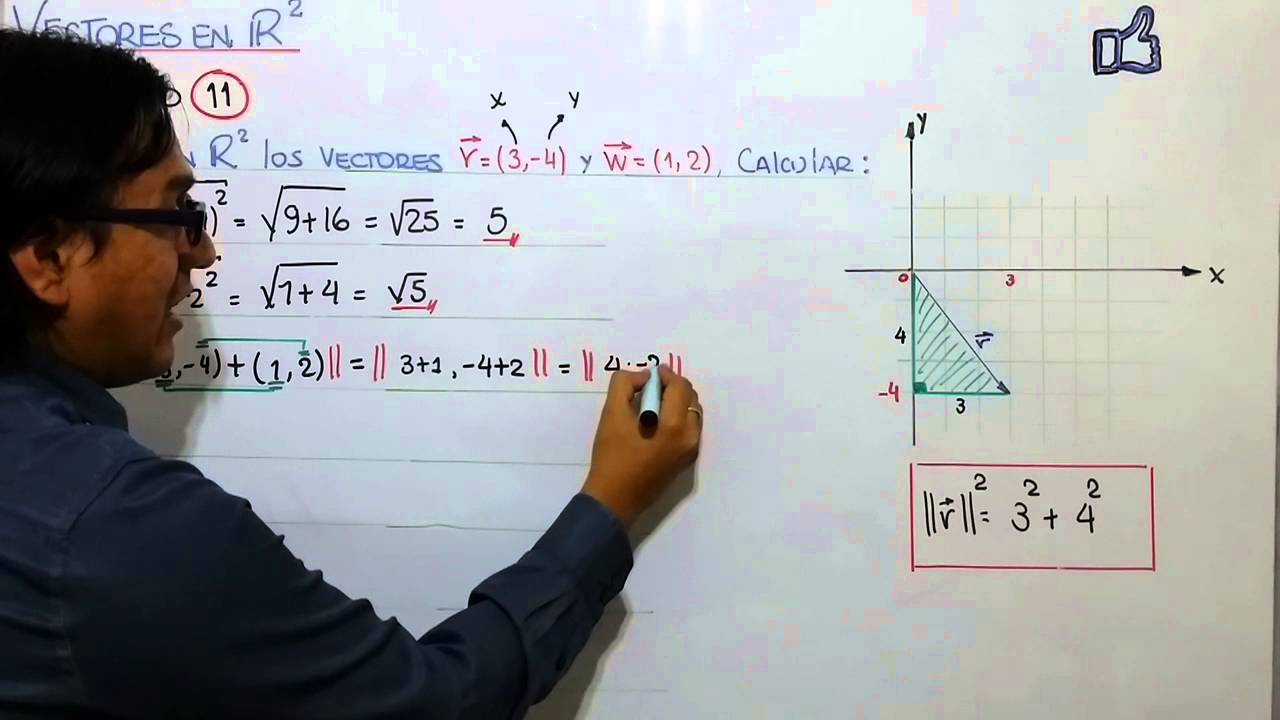 VECTORES EN ℝ²
11
x y
ℝ² los VECTORES r⃗ = (3,-4) y w⃗ = (1,2), CALCULAR:
)² = √9+16 = √25 = 5
2² = √1+4 = √5
,-4)+(1,2)|| = || 3+1,-4+2 || = || 4;-2 ||
y
0 3 x
4 r⃗
-4 3
||r⃗||² = 3² + 4²